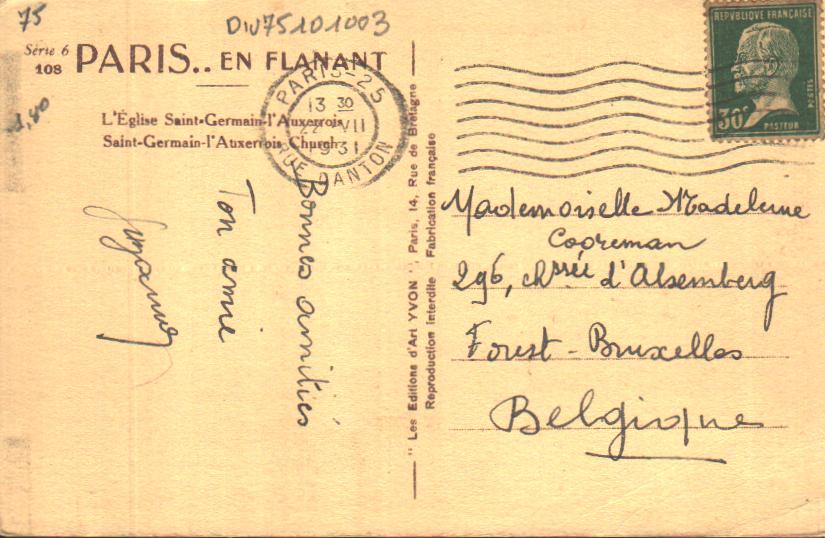 75
DIV75101003
Série 6
108
PARIS.. EN FLANANT
1,40
L'Église Saint-Germain-l'Auxerrois
Saint-Germain-l'Auxerrois Church
PARIS-25
13 30
22 VII
1931
RUE DANTON
RÉPUBLIQUE FRANÇAISE
POSTES
30c
PASTEUR
Bonnes amitiés
Ton amie
Suzanne
" Les Editions d'Art YVON ", Paris, 14, Rue de Bretagne
Reproduction interdite Fabrication française
Mademoiselle Madeleine
Cooreman
296, chssée d'Alsemberg
Forest - Bruxelles
Belgique